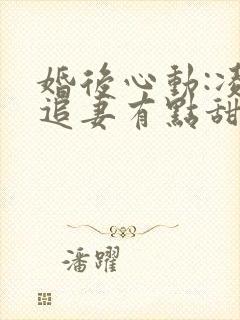 婚後心動:凌
追妻有點甜
潘躍